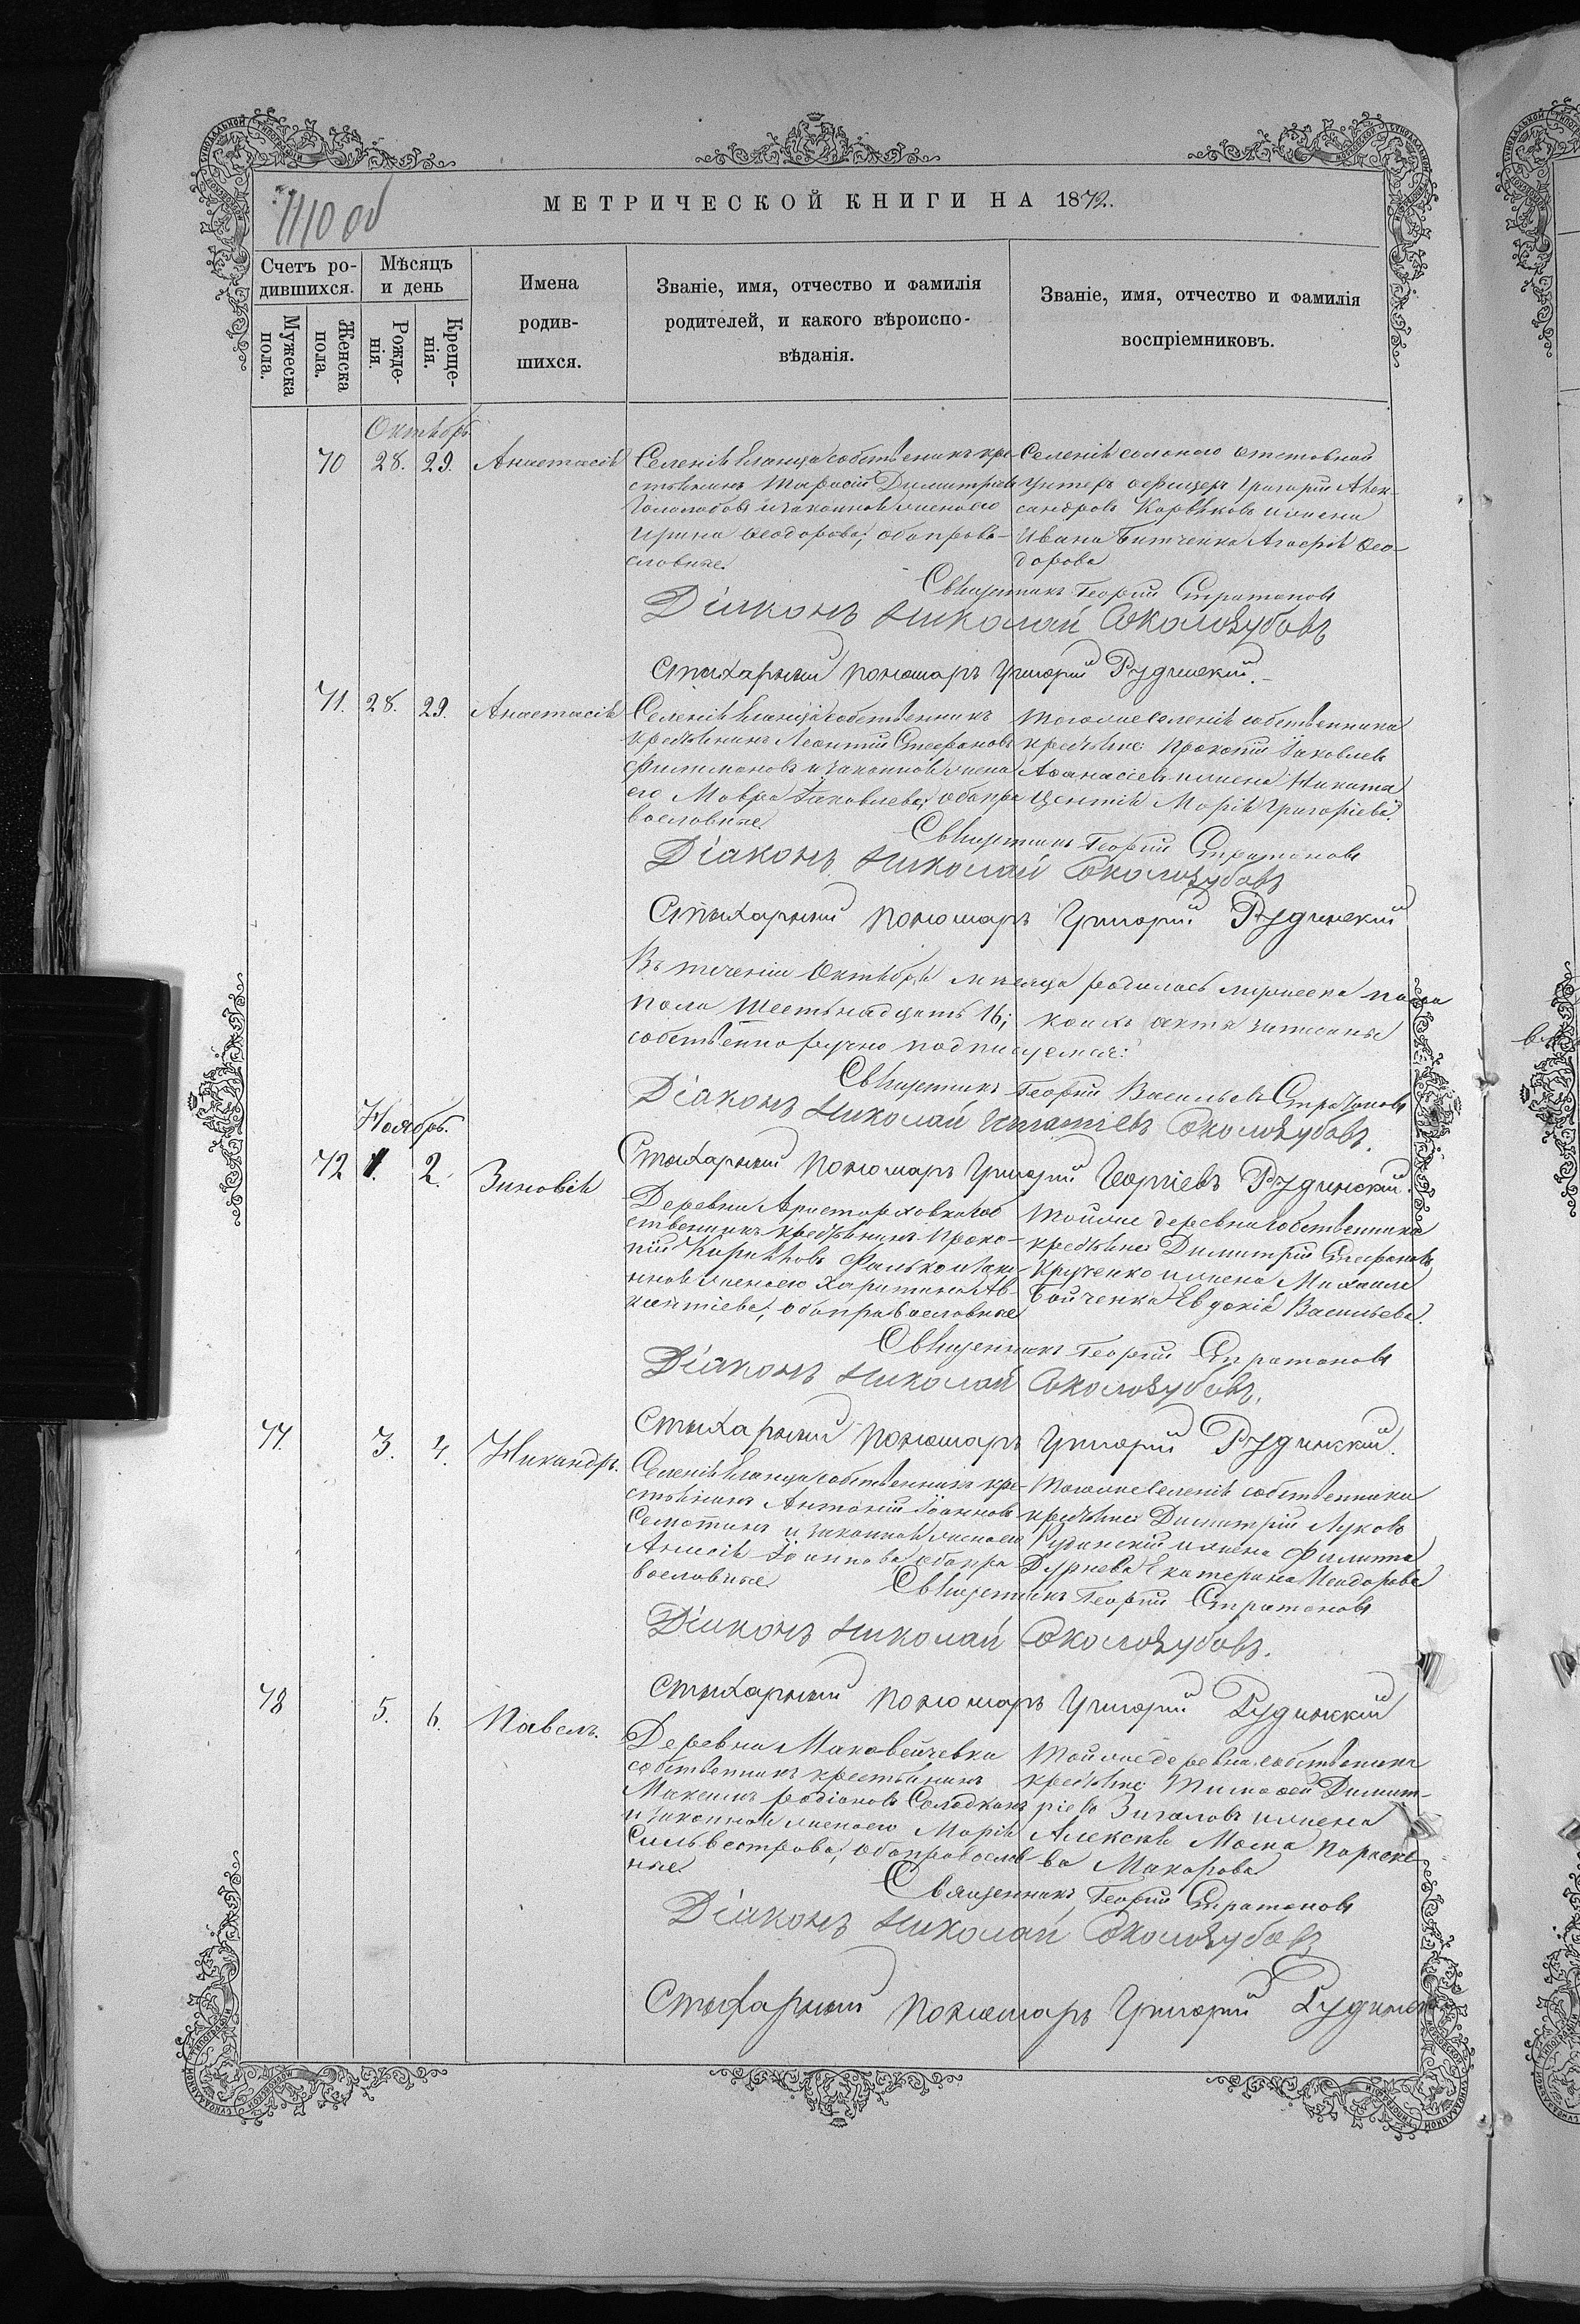 1110 об
МЕТРИЧЕСКОЙ КНИГИ НА 1872.
Счетъ ро-
дившихся.
Мѣсяцъ
и день
Мужеска
пола.
Женска
пола.
Рожде-
нія.
Креще-
нія.
Имена
родив-
шихся.
Званіе, имя, отчество и фамилія
родителей, и какого вѣроиспо-
вѣданія.
Званіе, имя, отчество и фамилія
воспріемниковъ.
Октябрь
70 28. 29. Анастасія
Селенія собственникъ кре-
стьянинъ Тарасій Димитріевъ
и законная жена его
Ирина Ѳеодорова; оба право-
славные.
Селенія отставной
унтеръ офицеръ Григорій Алек-
сандровъ и жена
Ивана Битченка Агафія Ѳео-
дорова
Священникъ Георгій Стратоновъ
Діаконъ Николай Околозубовъ
Стихарный пономарь Григорій Рудинскій.
71. 28. 29. Анастасія
Селенія собственникъ
крестьянинъ Леонтій Стефановъ
Филимоновъ и законная жена
его Мавра Іаковлева; оба пра
вославные.
Того же селенія собственника
крестьяне: Прокопій Іаковлевъ
Аѳанасіевъ и жена Никита
Марія Григоріева.
Священникъ Георгій Стратоновъ
Діаконъ Николай Околозубовъ
Стихарный пономарь Григорій Рудинскій
Въ теченіи Октября мѣсяца родилось мужеска пола
пола шестьнадцать 16; коихъ акта записаны
собственноручно подписуемся:
Священникъ Георгій Васильевъ Стратоновъ
Діаконъ Николай Игнатіевъ Околозубовъ.
Стихарный пономарь Григорій Георгіевъ Рудинскій.
Ноябрь.
72 1. 2. Зиновія
Деревни Аристарховка соб
ственникъ крестьянинъ Проко-
пій и зако-
нная жена его Харитина Ав-
ксентіева; оба православные
Той же деревни собственника
крестьяне Димитрій Стефановъ
Крученко и жена Михаила
Бойченка Евдокія Васильева.
Священникъ Георгій Стратоновъ
Діаконъ Николай Околозубовъ.
Стихарный пономарь Григорій Рудинскій.
77. 3. 4. Никандръ.
Селенія собственникъ кре-
стьянинъ Антоній Іоанновъ
и законная жена его
Анисія Іоаннова; оба пра
вославные.
Того же селенія собственники
крестьяне Димитрій Луковъ
Рудинскій и жена Филиппа
Дурнева Екатерина Исидорова
Священникъ Георгій Стратоновъ
Діаконъ Николай Околозубовъ.
Стихарный пономарь Григорій Рудинскій
78 5. 6. Павелъ.
Деревни Маковейчевки
собственникъ крестьянинъ
Максимъ Родіоновъ
и законная жена его Марія
Сильвестрова; оба православ
ные.
Той же деревни собственники
крестьяне: Тимоѳей Димит-
ріевъ и жена
Алексѣя Параске
ва Макарова
Священникъ Георгій Стратоновъ
Діаконъ Николай Околозубовъ
Стихарный пономарь Григорій Рудинскій